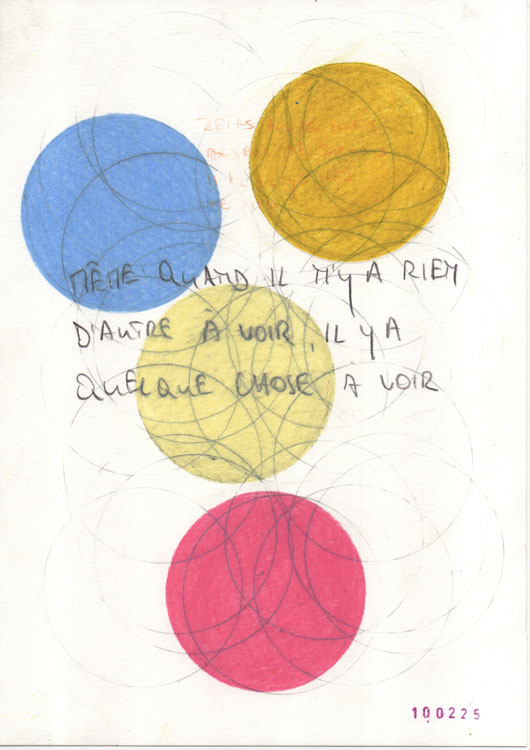 MÊME QUAND IL N'Y A RIEN
D'AUTRE À VOIR, IL Y A
QUELQUE CHOSE À VOIR
100225